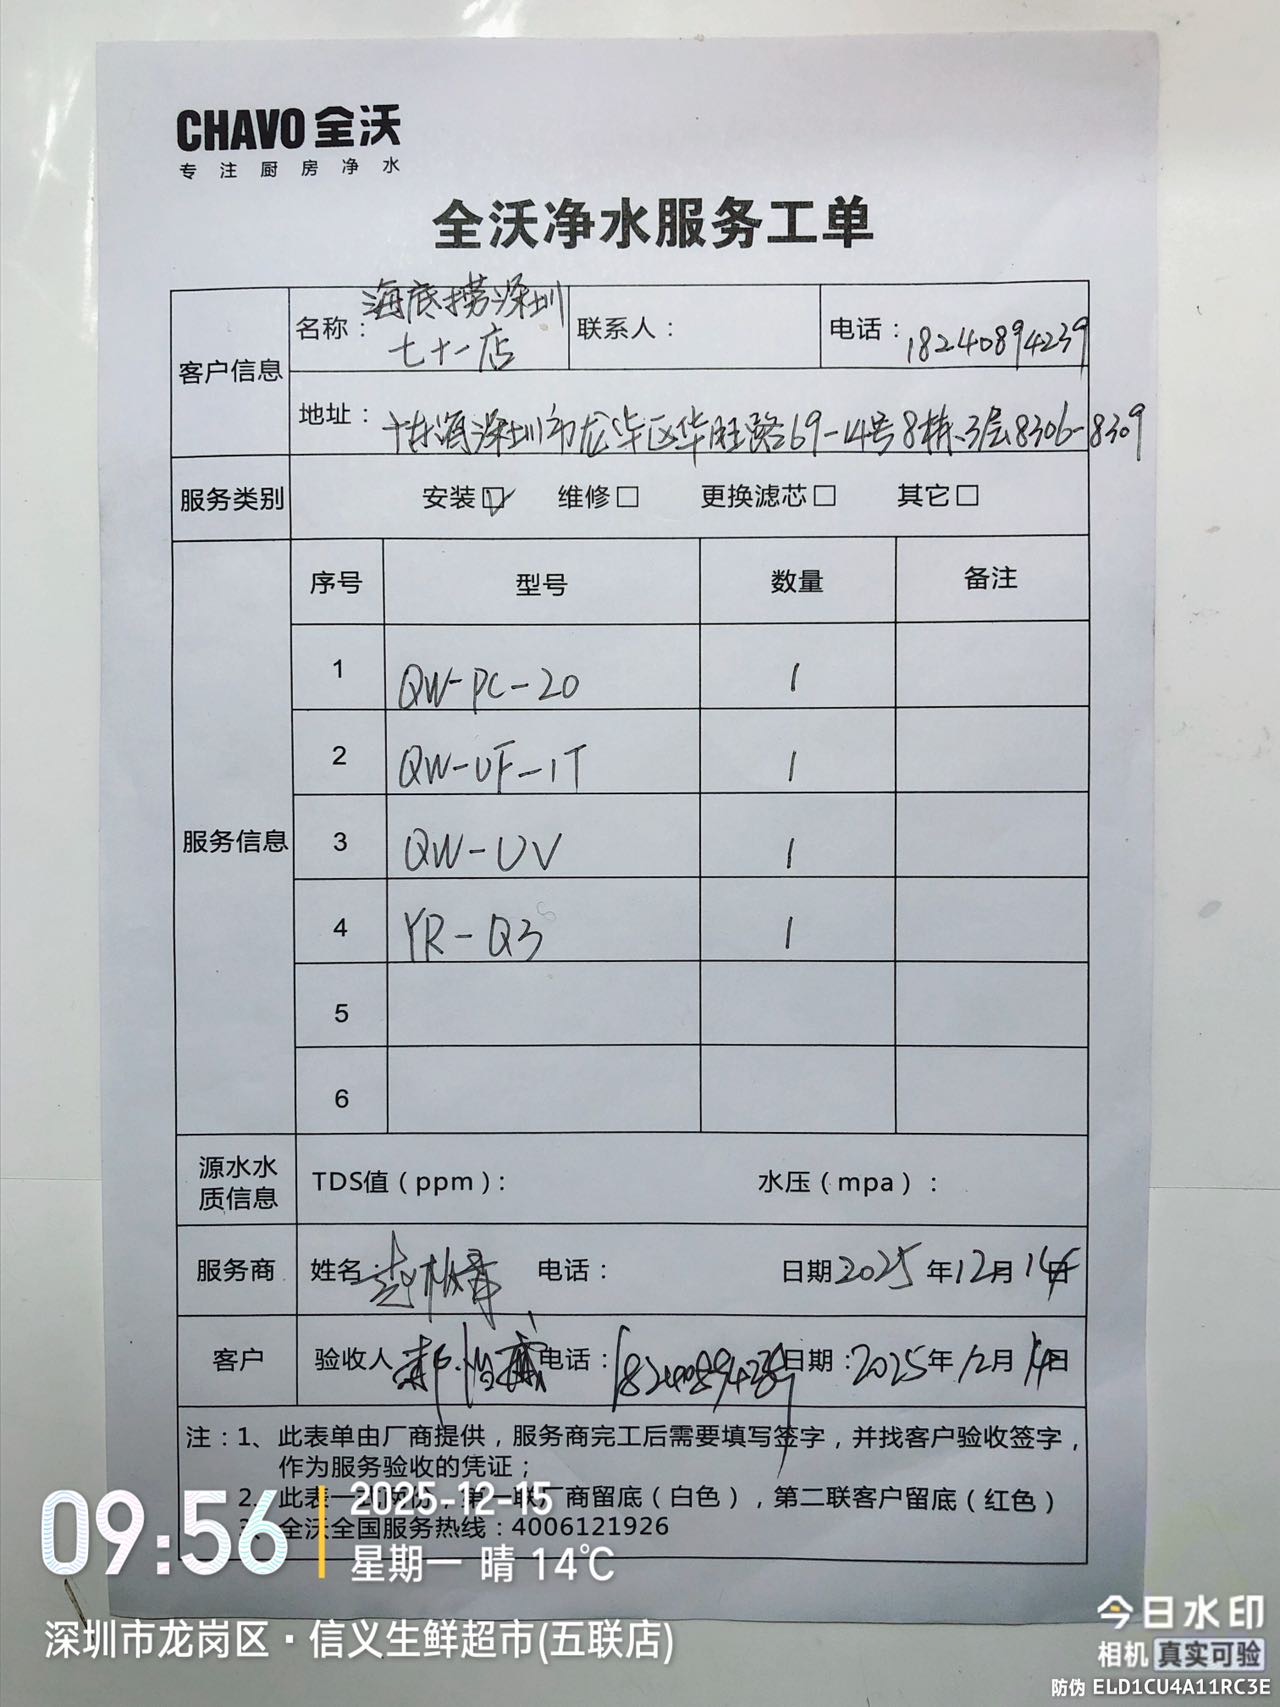 CHAVO 全沃
专注厨房净水
全沃净水服务工单
客户信息
名称：海底捞深圳
七十一店
联系人：
电话：18240894239
地址：深圳市龙华区华旺路69-14号8栋、3层8306-8309
服务类别
安装☑ 维修□ 更换滤芯□ 其它□
服务信息
序号 型号 数量 备注
1 QW-PC-20 1
2 QW-UF-1T 1
3 QW-UV 1
4 YR-Q3 1
5
6
源水水
质信息
TDS值（ppm）： 水压（mpa）：
服务商 姓名： 电话： 日期2025年12月14日
客户 验收人 电话：18240894239 日期：2025年12月14日
注：1、此表单由厂商提供，服务商完工后需要填写签字，并找客户验收签字，
作为服务验收的凭证；
2、此表一式两份，第一联厂商留底（白色），第二联客户留底（红色）
3、全沃全国服务热线：4006121926
09:56
2025-12-15
星期一 晴 14℃
深圳市龙岗区·信义生鲜超市(五联店)
今日水印
相机 真实可验
防伪 ELD1CU4A11RC3E